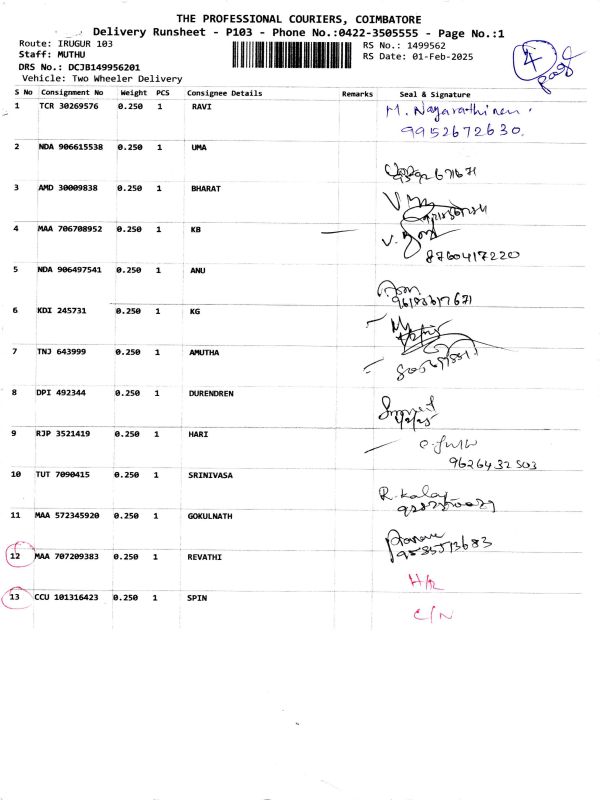 THE PROFESSIONAL COURIERS, COIMBATORE
Delivery Runsheet - P103 - Phone No.:0422-3505555 - Page No.:1
Route: IRUGUR 103
Staff: MUTHU
DRS No.: DCJB149956201
Vehicle: Two Wheeler Delivery
RS No.: 1499562
RS Date: 01-Feb-2025
4
S No Consignment No Weight PCS Consignee Details Remarks Seal & Signature
1 TCR 30269576 0.250 1 RAVI M. Nagarathinam.
9952672630.
2 NDA 906615538 0.250 1 UMA
3 AMD 30009838 0.250 1 BHARAT
4 MAA 706708952 0.250 1 KB
8760417220
5 NDA 906497541 0.250 1 ANU
6 KDI 245731 0.250 1 KG
7 TNJ 643999 0.250 1 AMUTHA
8 DPI 492344 0.250 1 DURENDREN
9 RJP 3521419 0.250 1 HARI
9626432503
10 TUT 7090415 0.250 1 SRINIVASA R. Kalai
11 MAA 572345920 0.250 1 GOKULNATH
9535513683
12 MAA 707209383 0.250 1 REVATHI
13 CCU 101316423 0.250 1 SPIN C/N